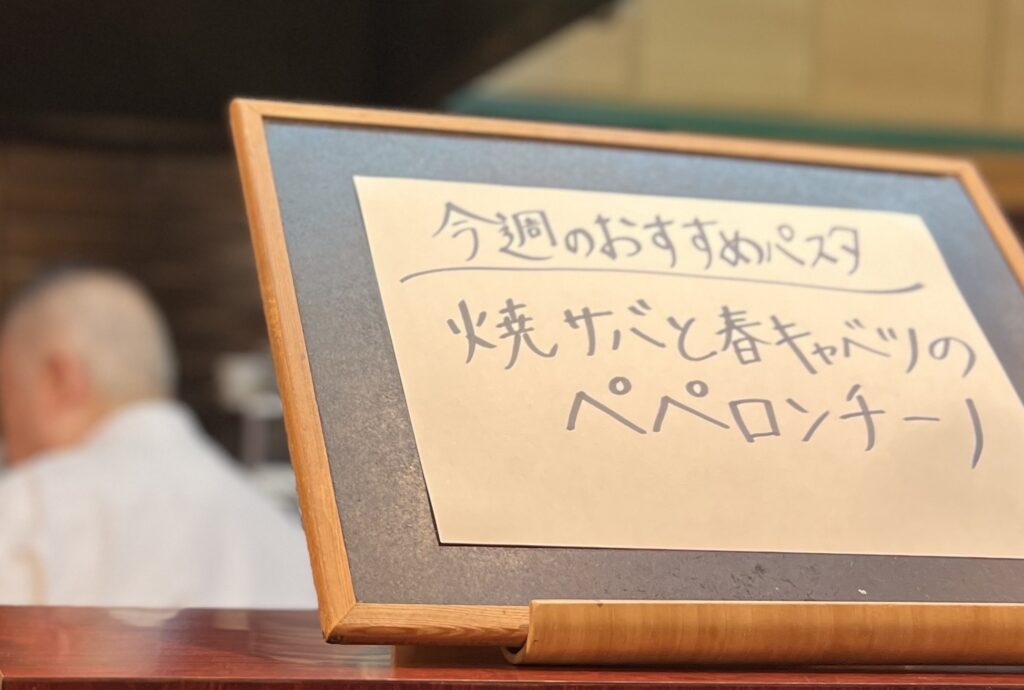 今週のおすすめパスタ
焼サバと春キャベツの
ペペロンチーノ